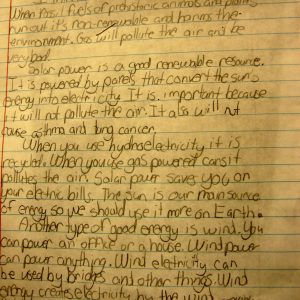 When fossil fuels of prehistoric animals and plants
run out it's non-renewable and harms the
environment. Gas will pollute the air and be
very bad!
Solar power is a good renewable resource.
It is powered by panels that convert the suns
energy into electricity. It is important because
it will not pollute the air. It also will not
cause asthma and lung cancer.
When you use hydroelectricity it is
recycled. When you use gas powered cars it
pollutes the air. Solar power saves you on
your electric bills. The sun is our main source
of energy so we should use it more on Earth.
Another type of good energy is wind. You
can power an office or a house. Wind power
can power anything. Wind eletricity can
be used by bridges and other things. Wind
energy creates electricity by the wind